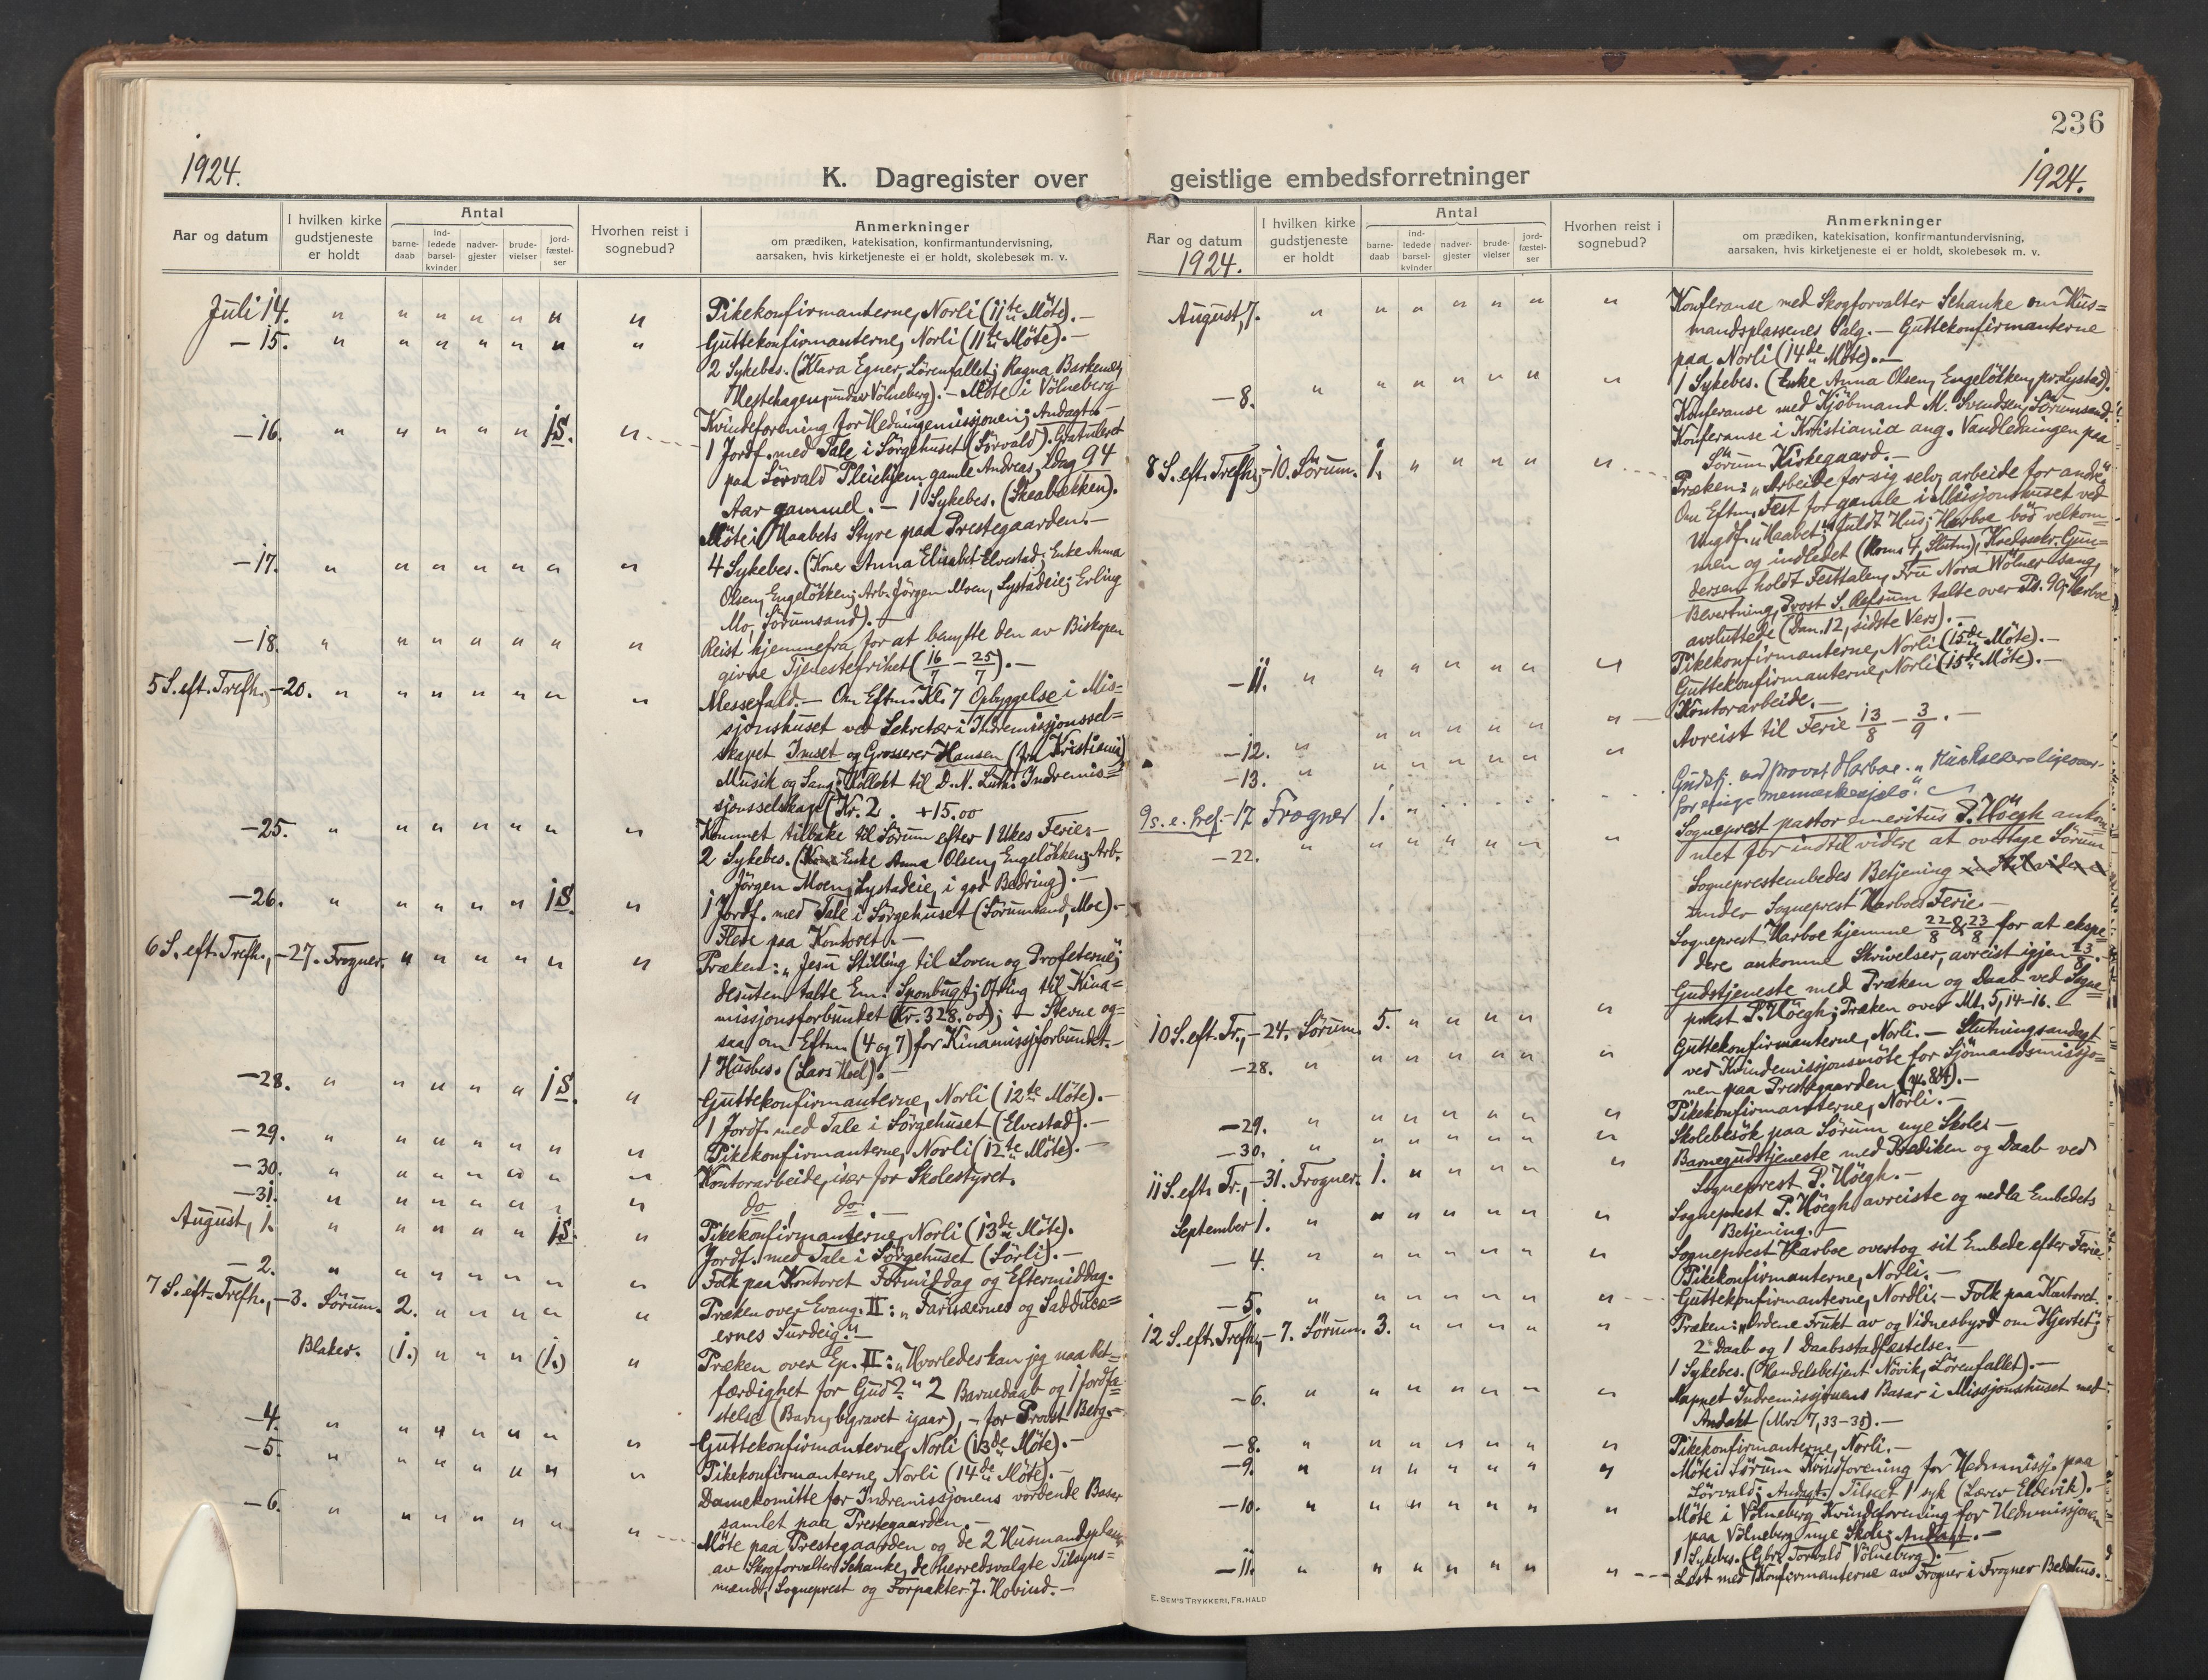 236
1924.
K. Dagregister over geistlige embedsforretninger
1924.
Aar og datum
I hvilken kirke gudstjeneste er holdt
Antal
barne-daab
ind-ledede barsel-kvinder
nadver-gjester
brude-vielser
jord-fæstel-ser
Hvorhen reist i sognebud?
Anmerkninger
om prædiken, katekisation, konfirmantundervisning,
aarsaken, hvis kirketjeneste ei er holdt, skolebesøk m. v.
Juli 14. " " " " " " " Pikekonfirmanterne, Norli (11te Möte). -
- 15. " " " " " " " Guttekonfirmanterne, Norli (11te Möte). -
2 Sykebes. (Klara Egner, Sörenfallet; Ragna Barkenes,
Hestehagen, under Völneberg). - Möte i Völneberg
Kvindeforening for Hedningemissjonen; Andagt. -
- 16. " " " " " 1S. " 1 Jordf. med Tale i Sörgehuset (Sörvald). Gratuleret
paa Sörvald Pleiehjem gamle Andreas, idag 94
Aar gammel. - 1 Sykebes. (Skeabækken).
Möte i Haabets Styre paa Prestegaarden. -
- 17. " " " " " " " 4 Sykebes. (Kone Anna Elisabet Elvestad; Enke Anna
Olsen, Engelökken; Arb. Jörgen Moen, Lystadeie; Erling
Mo, Sörumsand). -
- 18. " " " " " " " Reist hjemmefra for at benytte den av Biskopen
givne Tjenestefrihet (16/7 - 25/7). -
5 S. eft. Trefh., - 20. " " " " " " " Messefald. - Om Eftm. Kl. 7 Opbyggelse i Mis=
sjonshuset ved Sekretær i Indremissjonssel=
skapet Imset og Grosserer Hansen (fra Kristiania)
Musik og Sang; Kollekt til D. N. Luth. Indremis=
sjonsselskap (Kr. 2. + 15.00
- 25. " " " " " " " Kommet tilbake til Sörum efter 1 Ukes Ferie. -
2 Sykebes. (Enke Anna Olsen, Engelökken; Arb.
Jörgen Moen, Lystadeie, i god Bedring). -
- 26. " " " " " 1S. " 1 Jordf. med Tale i Sörgehuset (Sörumsand, Moe). -
Flere paa Kontoret. -
6 S. eft. Trefh., - 27. Frogner. " " " " " " Præken: "Jesu Stilling til Loven og Profeterne";
desuten talte Em. Sponbugt; Ofring til Kina=
missjonsforbundet (Kr. 328.00); - Stevne og=
saa om Eftm. (4 og 7) for Kinamissjforbundet. -
1 Husbes. (Lars Hoel). -
- 28. " " " " " 1S. " Guttekonfirmanterne, Norli (12te Möte). -
1 Jordf. med Tale i Sörgehuset (Elvestad). -
- 29. " " " " " " " Pikekonfirmanterne, Norli (12te Möte). -
- 30. " " " " " " " Kontorarbeide, især for Skolestyret.
- 31. " " " " " " " do do. -
August, 1. " " " " " 1S. " Pikekonfirmanterne, Norli (13de Möte).
Jordf. med Tale i Sörgehuset (Sörli). -
- 2. " " " " " " " Folk paa Kontoret Formiddag og Eftermiddag.
7 S. eft. Trefh., - 3. Sörum. 2. " " " " " Præken over Evang. II: "Farisæernes og Saddukæ=
ernes Surdeig." -
Blaker. (1.) " " " (1.) " Præken over Ep. II: "Hvorledes kan jeg naa Ret=
færdighet for Gud?" 2 Barnedaab og 1 Jordfæ=
stelse (Barn, begravet igaar), - for Provst Berg. -
- 4. " " " " " " " Guttekonfirmanterne, Norli (13de Möte). -
- 5. " " " " " " " Pikekonfirmanterne, Norli (14de Möte). -
Damekomitte for Indremissjonens vordende Basar
samlet paa Prestegaarden. -
- 6. " " " " " " " Möte paa Prestegaarden og de 2 Husmandsplasser
av Skogforvalter Schanke, de herredsvalgte Tilsyns=
mænd, Sogneprest og Forpakter J. Hovind. -
Aar og datum
1924.
I hvilken kirke gudstjeneste er holdt
Antal
barne-daab
ind-ledede barsel-kvinder
nadver-gjester
brude-vielser
jord-fæstel-ser
Hvorhen reist i sognebud?
Anmerkninger
om prædiken, katekisation, konfirmantundervisning,
aarsaken, hvis kirketjeneste ei er holdt, skolebesøk m. v.
August, 7. " " " " " " " Konferanse med Skogforvalter Schanke om Hus=
mandsplassenes Salg. - Guttekonfirmanterne
paa Norli (14de Möte). -
- 8. " " " " " " " 1 Sykebes. (Enke Anna Olsen, Engelökken, pr. Lystad).
Konferanse med Kjöbmand M. Svendsen, Sörumsand.
Konferanse i Kristiania ang. Vandledningen paa
Sörum Kirkegaard. -
8 S. eft. Trefh., - 10. Sörum. 1. " " " " " Præken: "Arbeide for sig selv, arbeide for andre".
Om Eftm. Fest for gamle i Missjonshuset ved
Ungdf. "Haabet", fuldt Hus; Harboe bød velkom=
men og indledet (Rom. 4, Slutn.), Kredssekr. Gun=
dersen holdt Festtalen, Fru Nora Wölner sang,
Bevertning, Provst S. Refsum talte over Ps. 90; Harboe
avsluttede (Dan. 12, sidste Vers). -
- 11. " " " " " " " Pikekonfirmanterne, Norli (15de Möte). -
Guttekonfirmanterne, Norli (15de Möte). -
- 12. " " " " " " " Kontorarbeide. -
- 13. " " " " " " " Avreist til Ferie 13/8 - 3/9. -
9 s. e. Tref. - 17 Frogner 1. " Gudstj. ved provst Harboe.
- 22. " " " " " " " Sogneprest pastor emeritus P. Höegh ankom=
met for indtil videre at overtage Sörum
Sogneprestembedes Betjening
under Sogneprest Harboes Ferie. -
Sogneprest Harboe hjemme 22/8 & 23/8 for at ekspe=
dere ankomne Skrivelser, avreist igjen 23/8. -
10 S. eft. Tr., - 24. Sörum. 5. " " " " " Gudstjeneste med Præken og Daab ved Sogne=
prest P. Höegh; Præken over Mt. 5, 14-16.
- 28. " " " " " " " Guttekonfirmanterne, Norli. - Slutningsandagt
ved Kvindemissjonsmöte for Sjömandsmissjo=
nen paa Prestegaarden. -
- 29. " " " " " " " Pikekonfirmanterne, Norli. -
- 30. " " " " " " " Skolebesök paa Sörum nye Skole. -
11 S. eft. Tr., - 31. Frogner. 1. " " " " " Barnegudstjeneste med Prædiken og Daab ved
Sogneprest P. Höegh. -
September 1. " " " " " " " Sogneprest P. Höegh avreiste og nedla Embedets
Betjening. -
- 4. " " " " " " " Sogneprest Harboe overtog sit Embede efter Ferie.
Pikekonfirmanterne, Norli. -
- 5. " " " " " " " Guttekonfirmanterne, Nordli. - Folk paa Kontoret.
12 S. eft. Trefh., - 7. Sörum. 3. " " " " " Præken: "Ordene Frukt av og Vidnesbyrd om Hjertet";
2 Daab og 1 Daabsstadfæstelse. -
1 Sykebes. (Handelsbetjent Növik, Sörenfallet). -
- 6. " " " " " " " Aapnet Indremissjonens Basar i Missjonshuset med
Andakt (Mr. 7, 33-35). -
- 8. " " " " " " " Pikekonfirmanterne, Norli. -
- 9. " " " " " " " Möte i Sörum Kvindforening for Hedmissj. paa
Sörvald; Andagt. Tilset 1 syk (Lærer Eldevik). -
- 10. " " " " " " " Möte i Völneberg Kvindeforening for Hedmissjonen
paa Völneberg nye Skole; Andagt. -
1 Sykebes. (Gbr. Torvald Völneberg). -
- 11. " " " " " " " Læst med Konfirmanterne av Frogner i Frogner Bedehus.
E. SEM'S TRYKKERI, FR.HALD